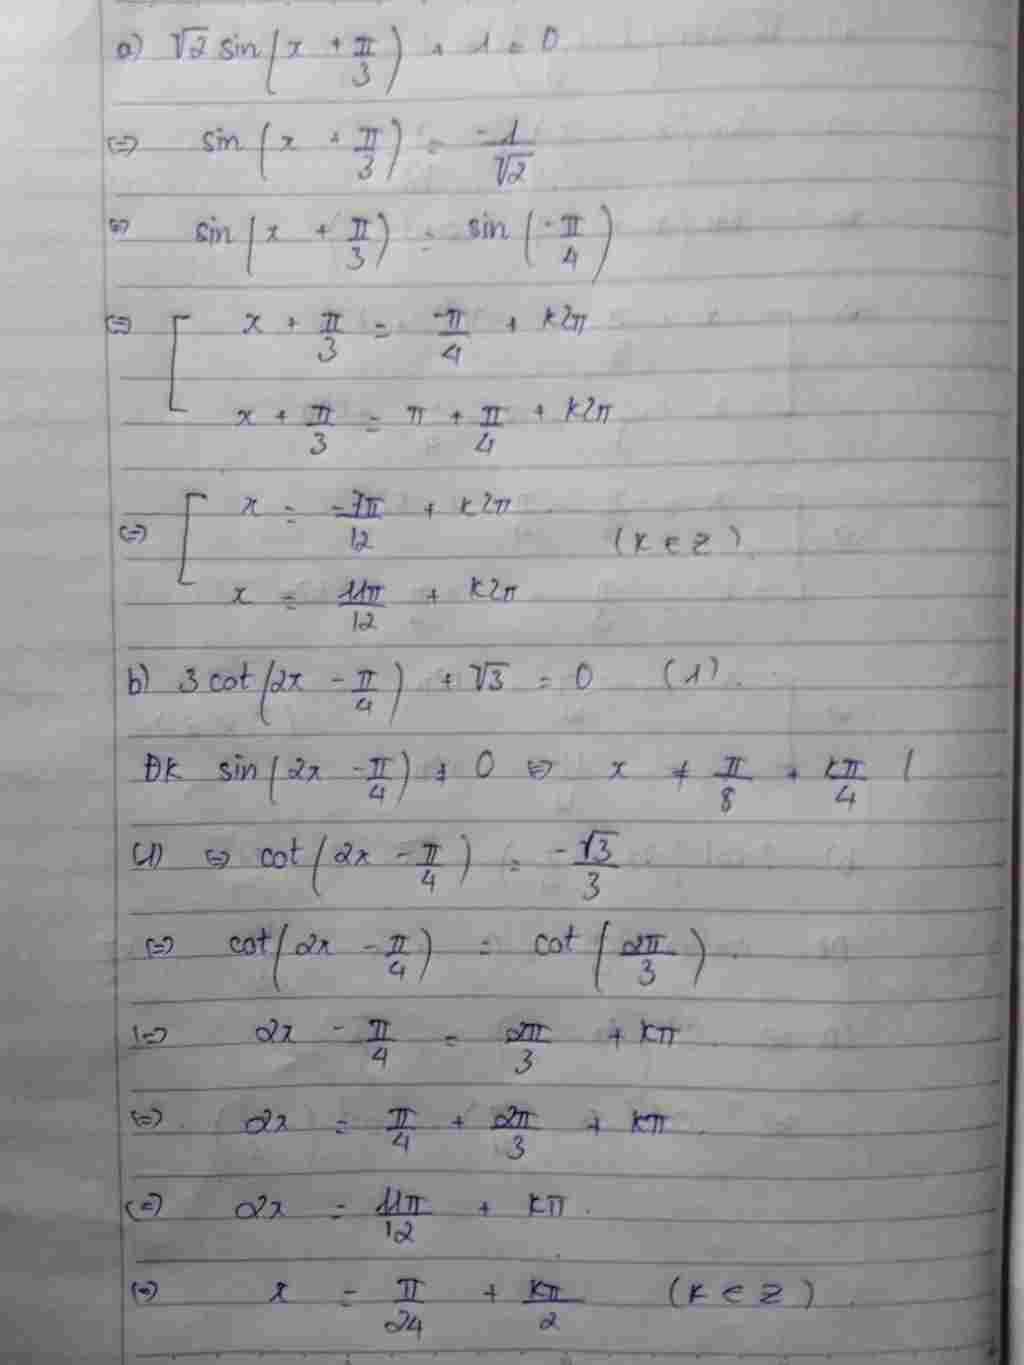 a) √2 sin(x + π/3) + 1 = 0
⇔ sin(x + π/3) = -1/√2
⇔ sin(x + π/3) = sin(-π/4)
⇔ [ x + π/3 = -π/4 + k2π
x + π/3 = π + π/4 + k2π
⇔ [ x = -7π/12 + k2π
(k ∈ Z)
x = 11π/12 + k2π
b) 3 cot(2x - π/4) + √3 = 0 (1).
ĐK sin(2x - π/4) ≠ 0 ⇔ x ≠ π/8 + kπ/4 /
(1) ⇔ cot(2x - π/4) = -√3/3
⇔ cot(2x - π/4) = cot(2π/3).
⇔ 2x - π/4 = 2π/3 + kπ.
⇔ 2x = π/4 + 2π/3 + kπ.
⇔ 2x = 11π/12 + kπ.
⇔ x = π/24 + kπ/2 (k ∈ Z).